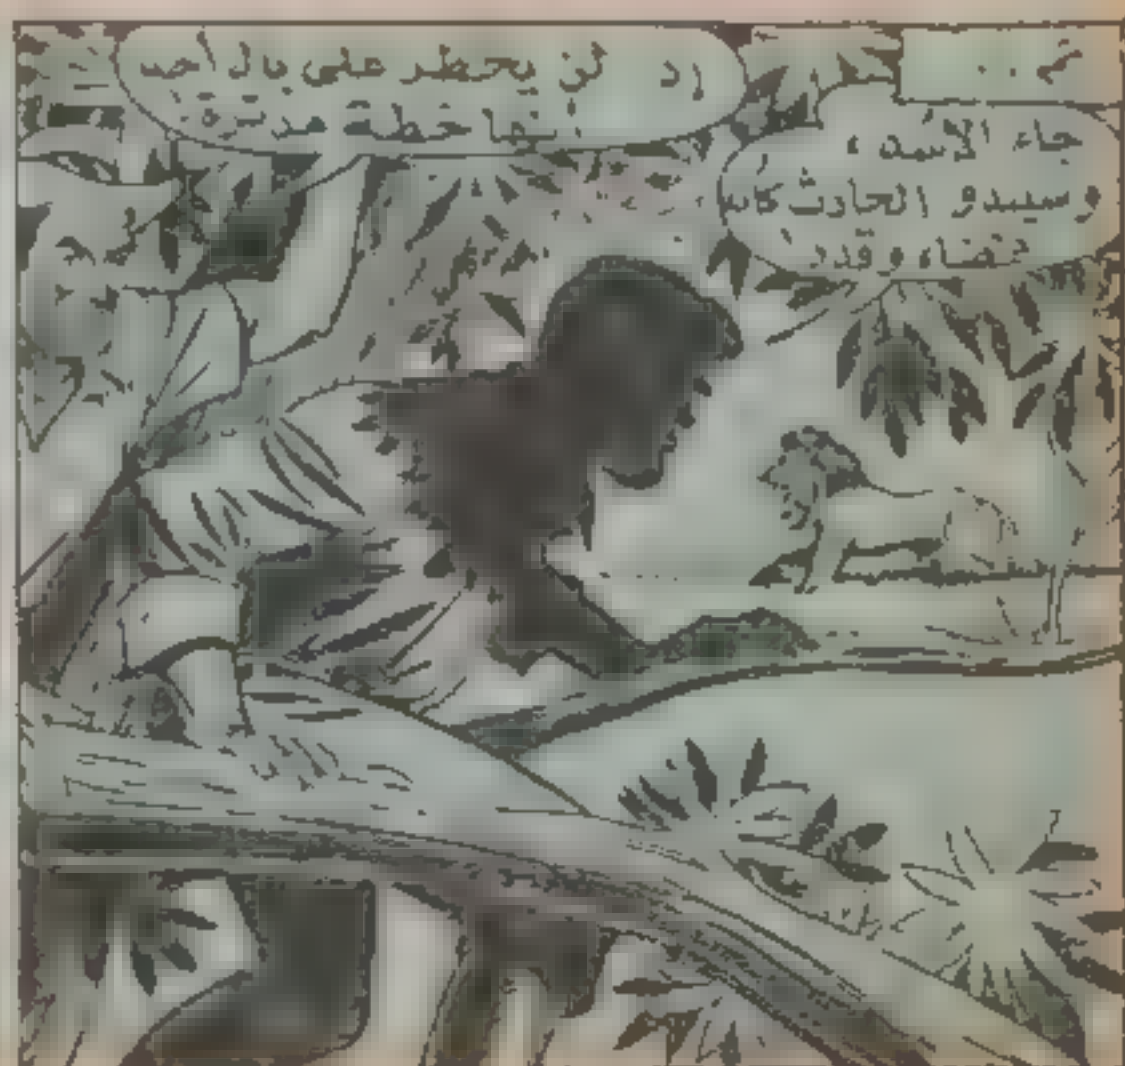 جاء الأسد ،
وسيبدو الحادث كأنه
قضاء وقدر
لن يخطر على بال أحد
خطة مدبرة